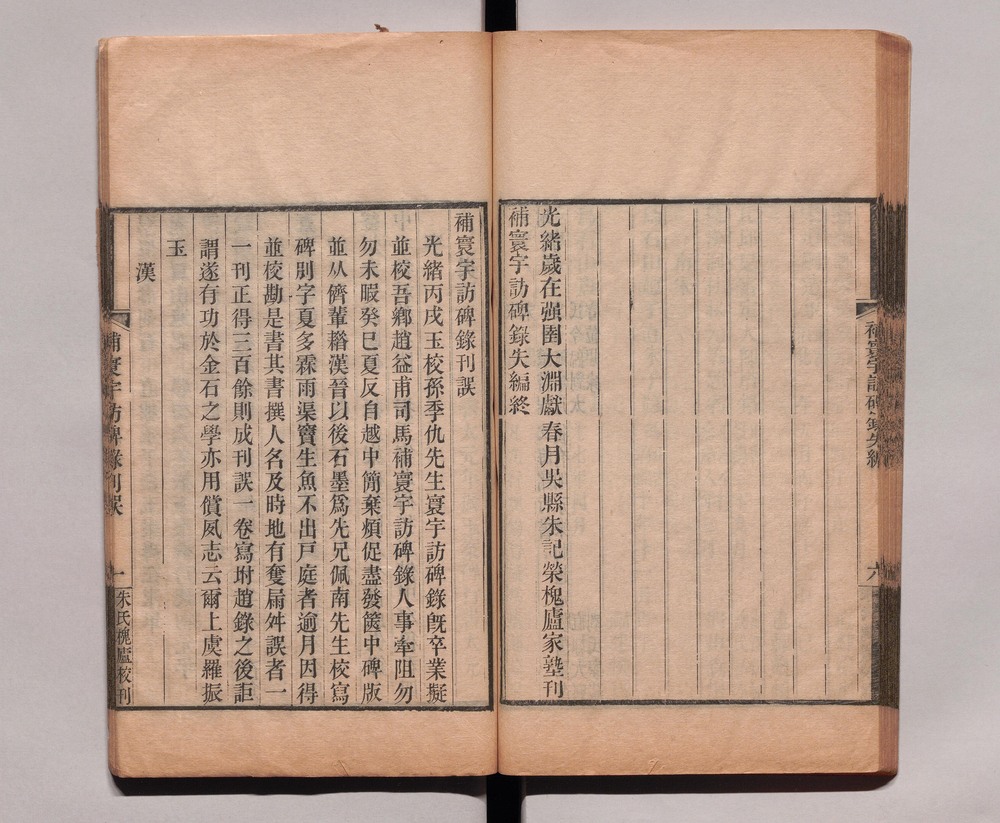 補寰宇訪碑錄失編
六
光緒歲在强圉大淵獻春月吳縣朱記榮槐廬家塾刊
補寰宇訪碑錄失編終
補寰宇訪碑錄刊誤
光緒丙戌玉校孫季仇先生寰宇訪碑錄旣卒業擬
並校吾鄉趙益甫司馬補寰宇訪碑錄人事牽阻勿
勿未暇癸巳夏反自越中簡棄煩促盡發篋中碑版
並从儕輩橊漢晉以後石墨爲先兄佩南先生校寫
碑別字夏多霖雨渠竇生魚不出戸庭者逾月因得
並校勘是書其書撰人名及時地有奪屚舛誤者一
一刊正得三百餘則成刊誤一卷寫坿趙錄之後詎
謂遂有功於金石之學亦用償夙志云爾上虞羅振
玉
漢
補寰宇訪碑錄刊誤
一
朱氏槐廬校刊